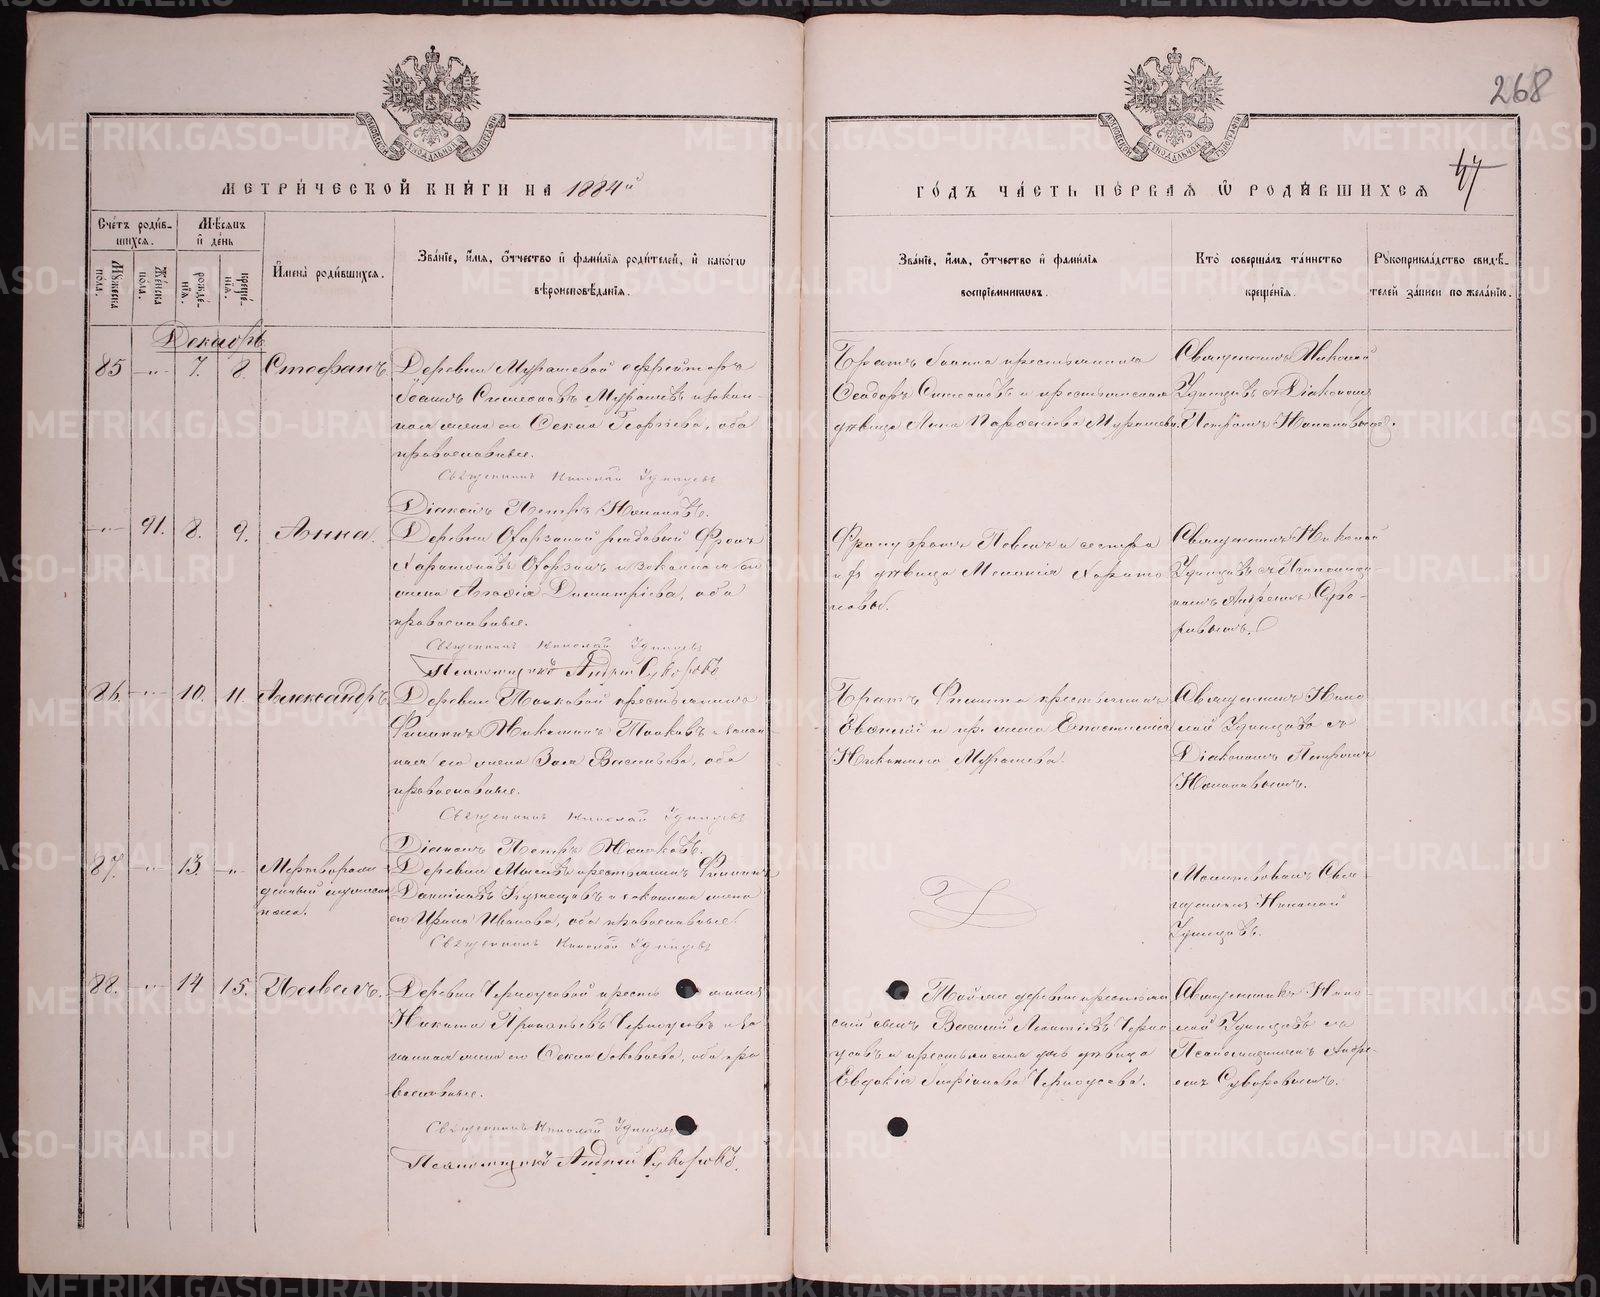 268
47
МЕТРИЧЕСКОЙ КНИГИ НА 1884й
ГОДЪ ЧАСТЬ ПЕРВАЯ Ѡ РОДИВШИХСЯ
Счетъ родив-
шихся.
Мѣсяцъ
и день
Мужеска
пола.
Женска
пола.
рожде-
нія.
креще-
нія.
Имена родившихся.
Званіе, имя, отчество и фамилія родителей, и какогѡ
вѣроисповѣданія.
Званіе, имя, отчество и фамилія
воспріемниковъ.
Кто совершалъ таинство
крещенія.
Рукоприкладство свидѣ-
телей записи по желанію.
Декабрь
85 -"- 7. 8. Стефанъ.
Деревни Мурашевой ефрейторъ
Іоаннъ Симеоновъ Мурашевъ и закон-
ная жена его Секла Георгіева, оба
православные.
Священникъ Николай Удинцевъ
Діаконъ Петръ
Братъ Іоанна крестьянинъ
Ѳеодоръ Симеоновъ и крестьянская
дѣвица Анна Парѳеніева Мурашева.
Священникъ Николай
Удинцевъ съ Діакономъ
Петромъ
-"- 91. 8. 9. Анна.
Деревни рядовый Фролъ
Харитоновъ и законная его
жена Агафія Димитріева, оба
православные.
Священникъ Николай Удинцевъ
Псаломщикъ Андрей Суворовъ
Фролу братъ Павелъ и сестра
дѣвица Меланія Харито-
новы.
Священникъ Николай
Удинцевъ съ Псаломщи-
комъ Андреемъ Суво-
ровымъ.
86. -"- 10. 11. Александръ.
Деревни крестьянинъ
Филиппъ Никитинъ и закон-
ная его жена Васильева, оба
православные.
Священникъ Николай Удинцевъ
Діаконъ Петръ
Братъ Филиппа крестьянинъ
Евгеній и кр. жена
Никитина Мурашева.
Священникъ Нико-
лай Удинцевъ съ
Діакономъ Петромъ
87. -"- 13. -"- Мертворож-
денный мужеска
пола.
Деревни крестьянинъ Филиппъ
Данииловъ Кузнецовъ и законная жена
его Ирина Иванова, оба православные.
Священникъ Николай Удинцевъ
Молитвовалъ Свя-
щенникъ Николай
Удинцевъ.
88. -"- 14 15. Павелъ.
Деревни Черноусовой кресть янинъ
Никита Черноусовъ и за-
конная жена его Секла Іаковлева, оба пра-
вославные.
Священникъ Николай Удинцевъ
Псаломщикъ Андрей Суворовъ.
Той же деревни крестьян-
скій сынъ Василій Леонтіевъ Черно-
усовъ и крестьянская дочь дѣвица
Евдокія Черноусова.
Священникъ Нико-
лай Удинцевъ съ
Псаломщикомъ Андре-
емъ Суворовымъ.